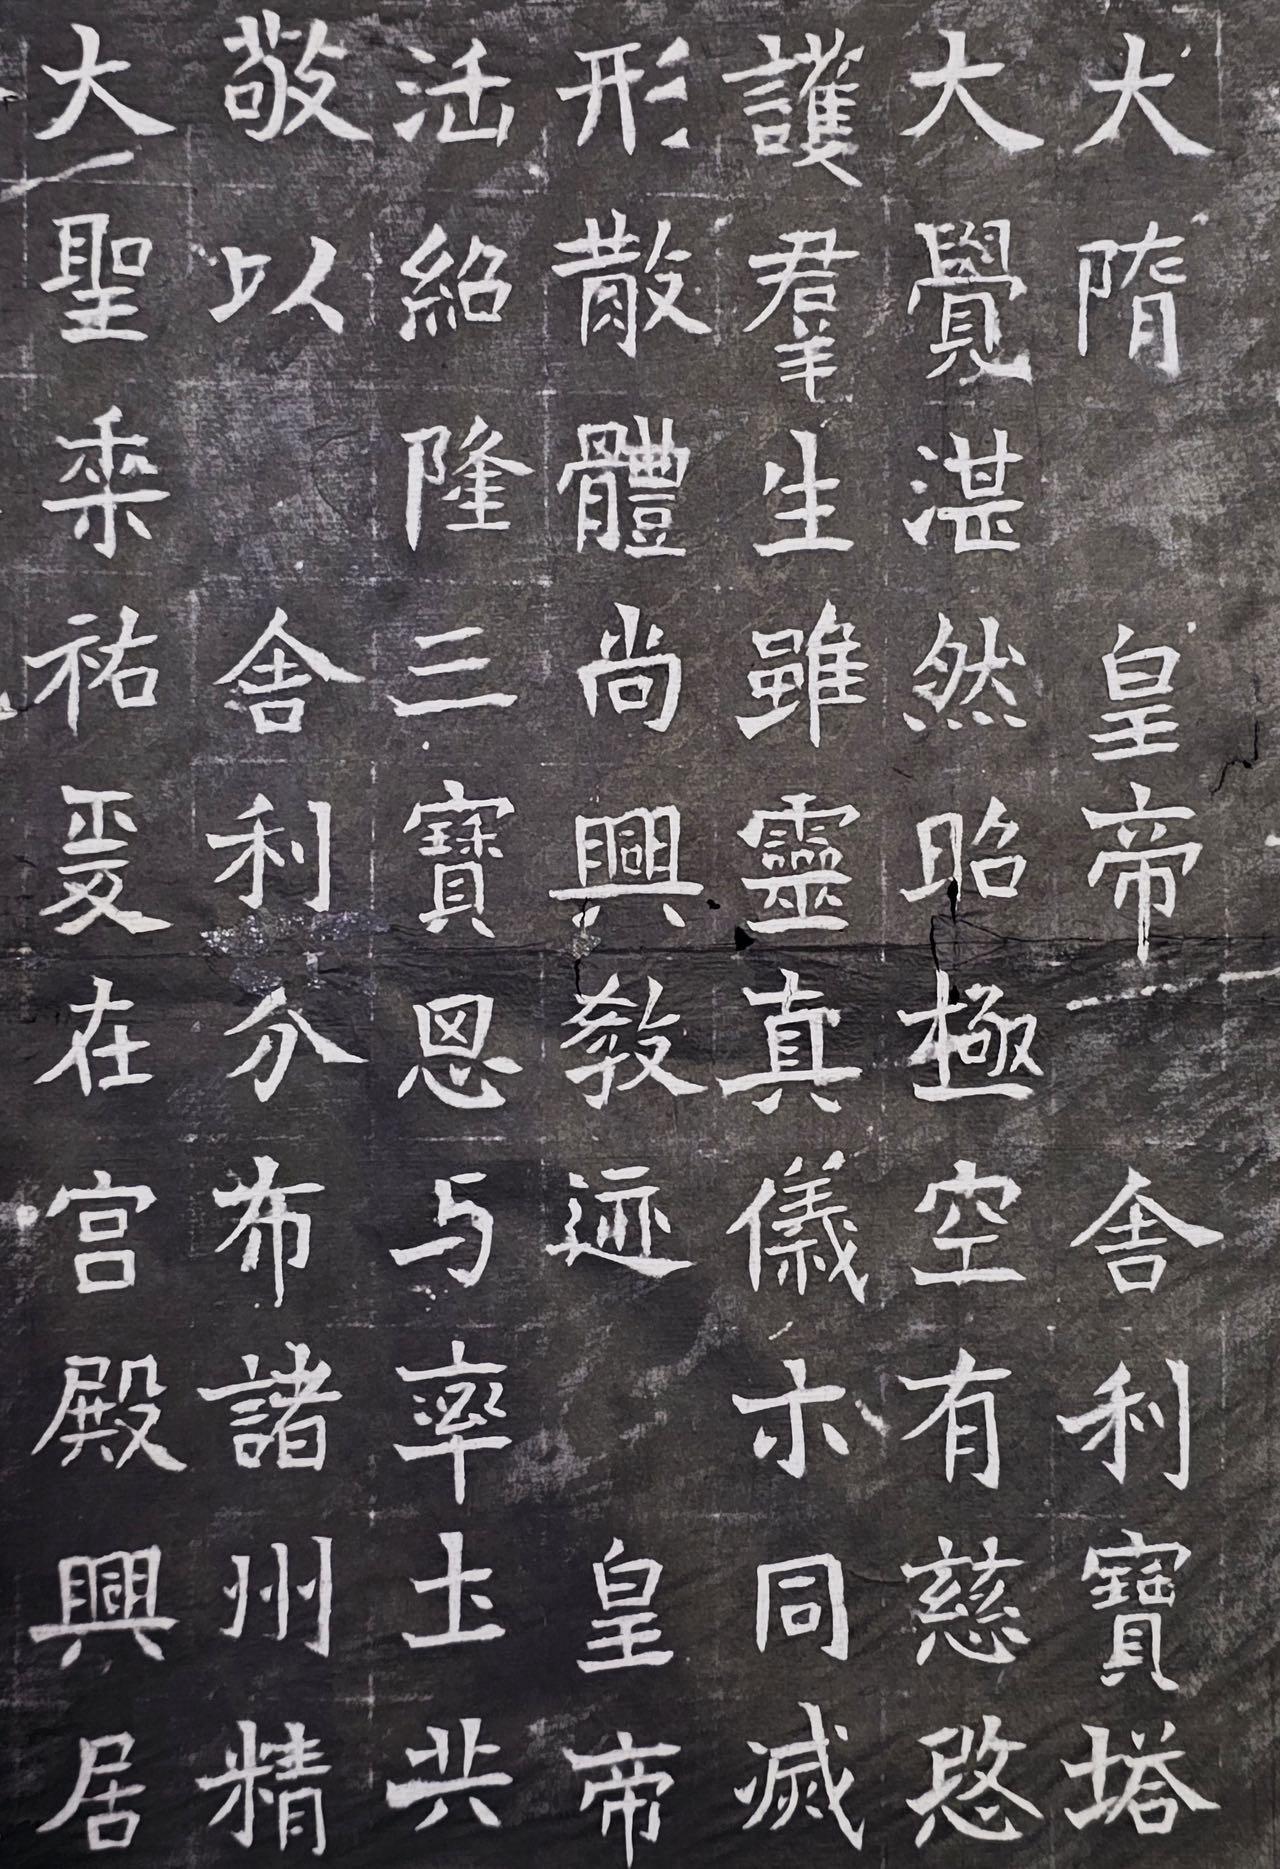 大隋皇帝舍利寶塔
大覺湛然昭極空有慈愍
護羣生雖靈真儀示同滅
形散體尚興教迹皇帝
活紹隆三寶恩与率土共
敬以舍利分布諸州精
大聖乘祐爰在宫殿興居